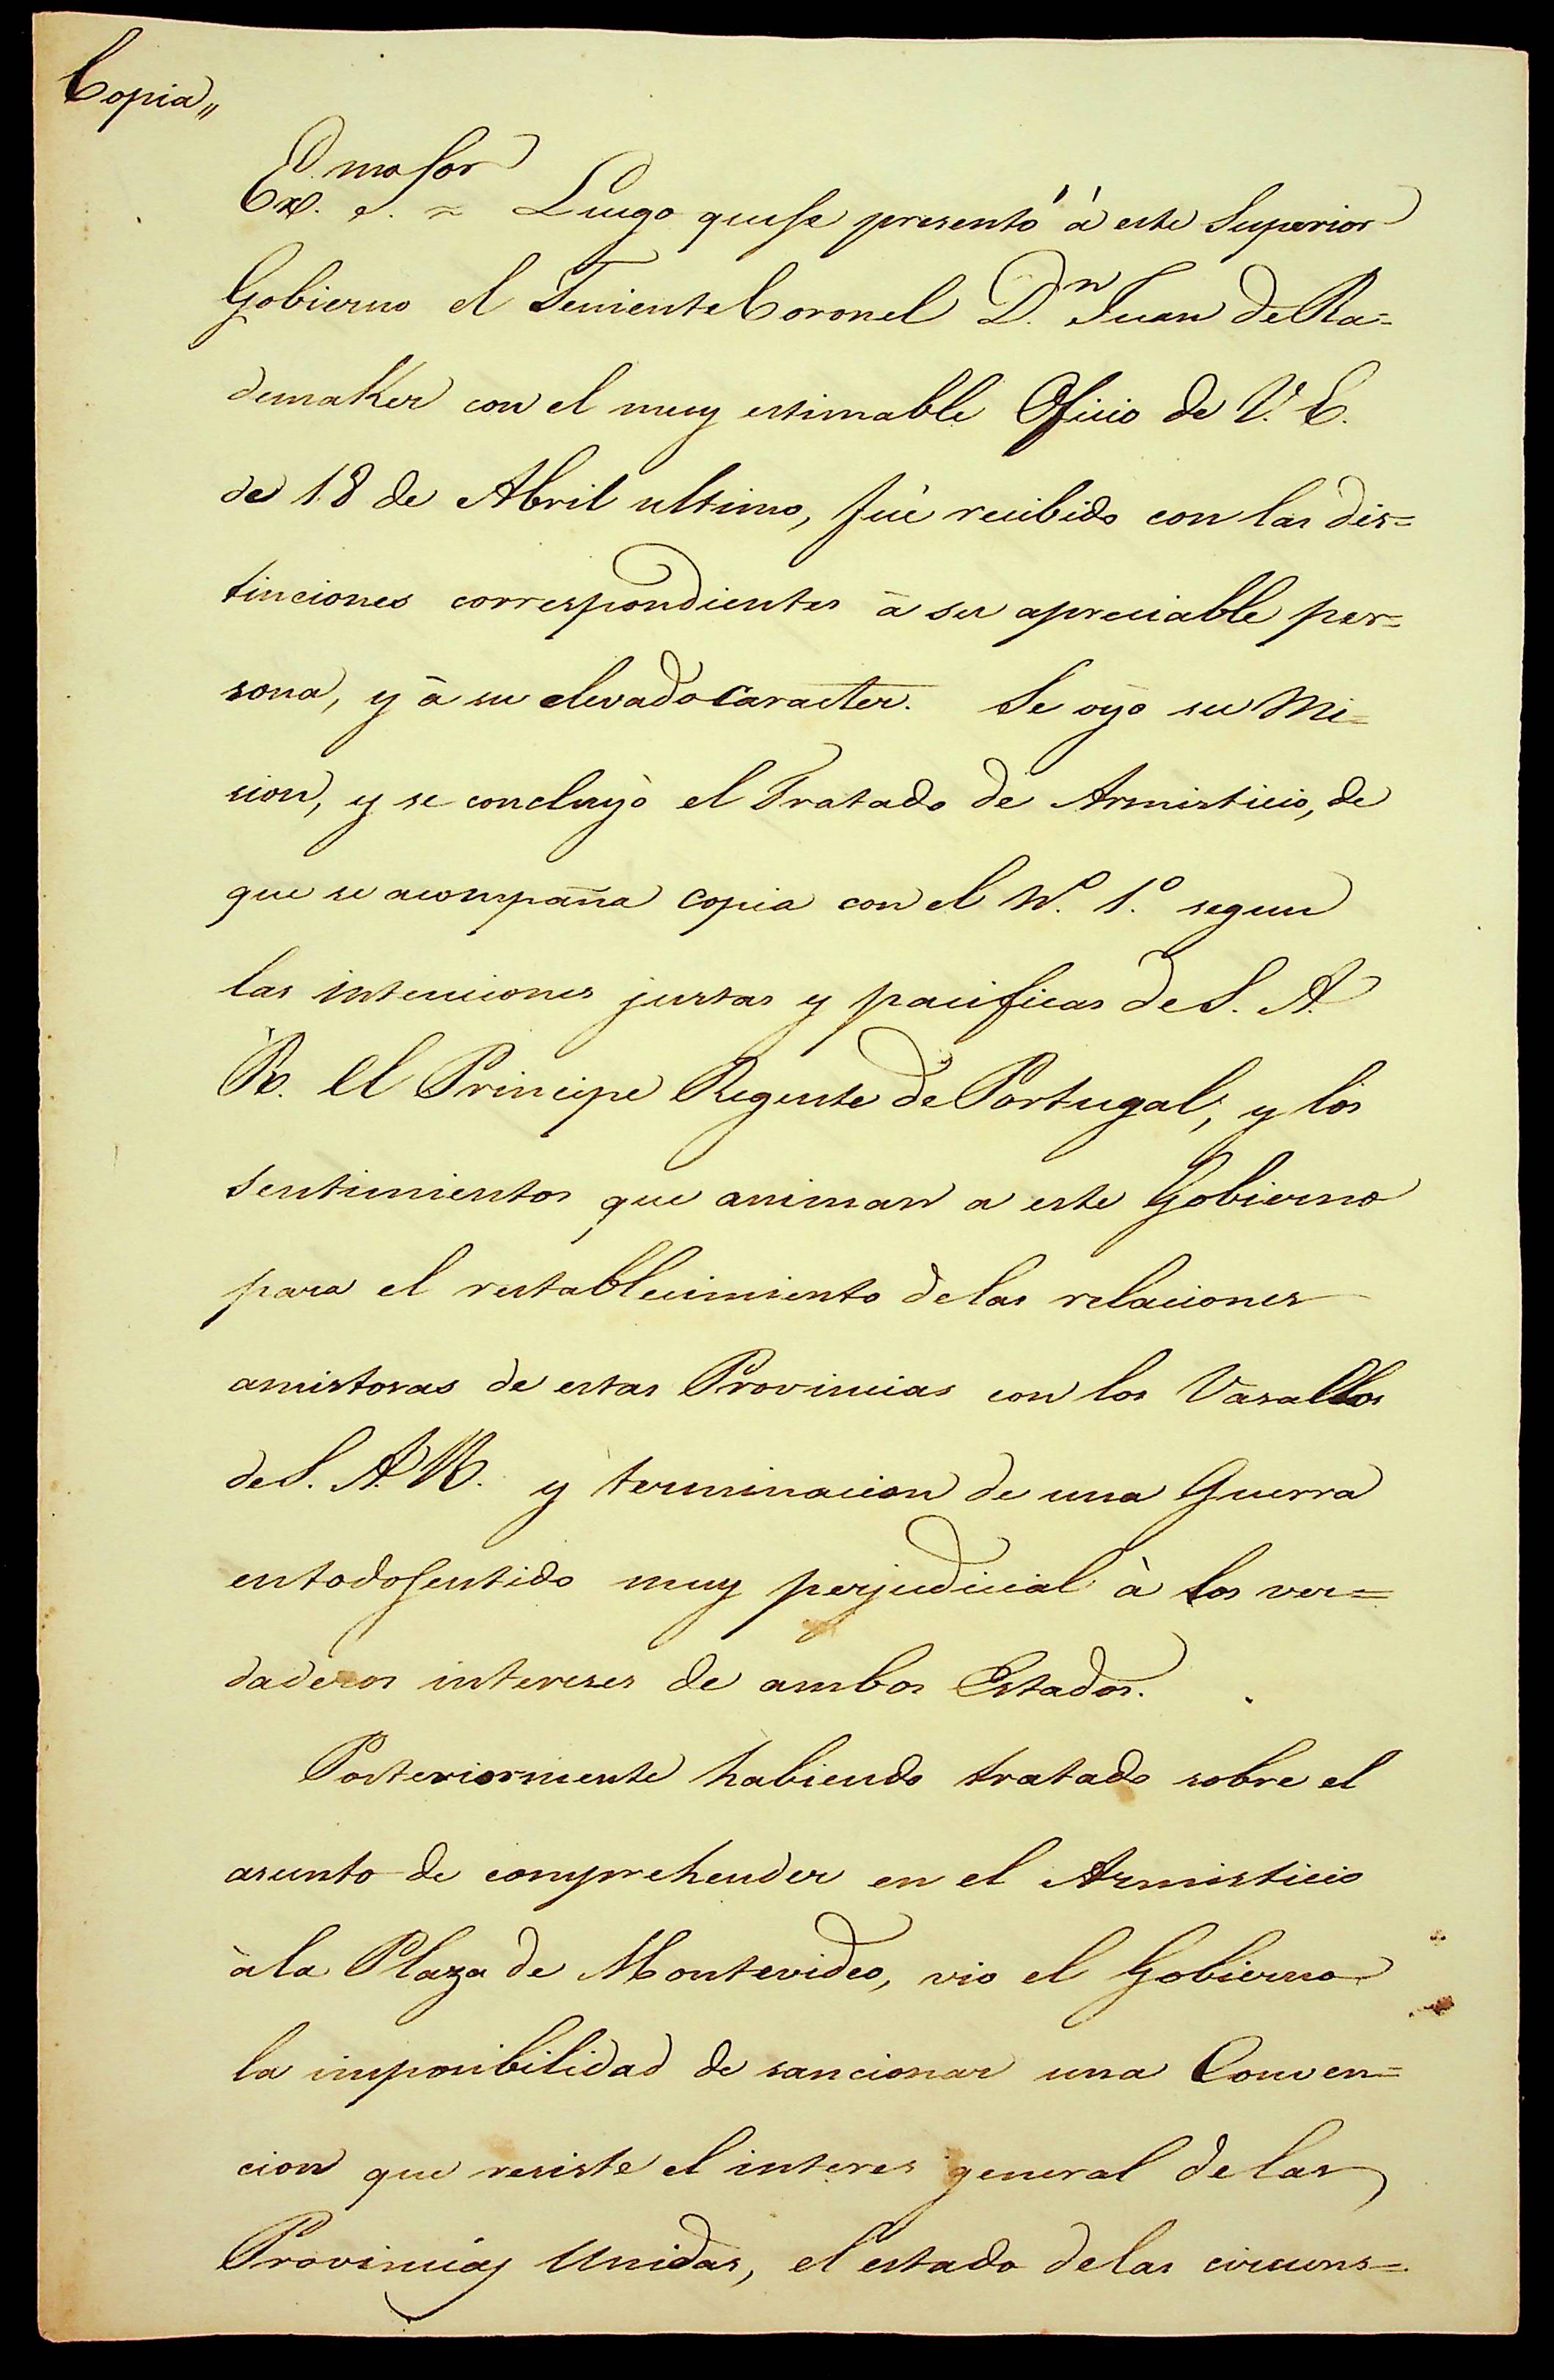 Copia,,
Ex.mo S.or = Luego que se presentó à este Superior
Gobierno el Teniente Coronel D.n Juan de Ra=
demaker con el muy estimable Oficio de V. E.
de 18 de Abril ultimo, fuè recibido con las dis=
tinciones correspondientes à su apreciable per=
sona, y à su elevado caracter. Se oyo su Mi=
sion, y se concluyò el Tratado de Armisticio, de
que se acompaña copia con el N.o 1.o segun
las intenciones justas y pacificas de S. A.
R. el Principe Regente de Portugal, y los
sentimientos que animan a este Gobierno
para el restablecimiento de las relaciones
amistosas de estas Provincias con los Vasallos
de S. A. R. y terminacion de una Guerra
en todo sentido muy perjudicial à los ver=
daderos intereses de ambos Estados.
Posteriormente habiendo tratado sobre el
asunto de comprehender en el Armisticio
à la Plaza de Montevideo, vio el Gobierno
la imposibilidad de sancionar una Conven=
cion que resiste el interes general de las
Provincias Unidas, el estado de las circuns=